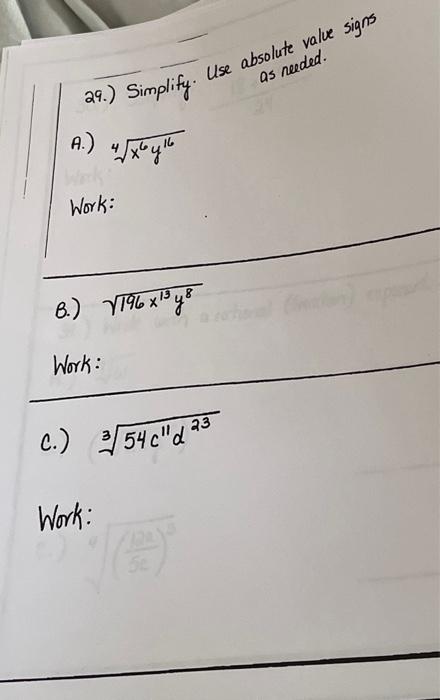 29.) Simplify. Use absolute value signs
as needed.
A.) ⁴√x⁶y¹⁶
Work:
B.) √196x¹³y⁸
Work:
C.) ³√54c¹¹d²³
Work: